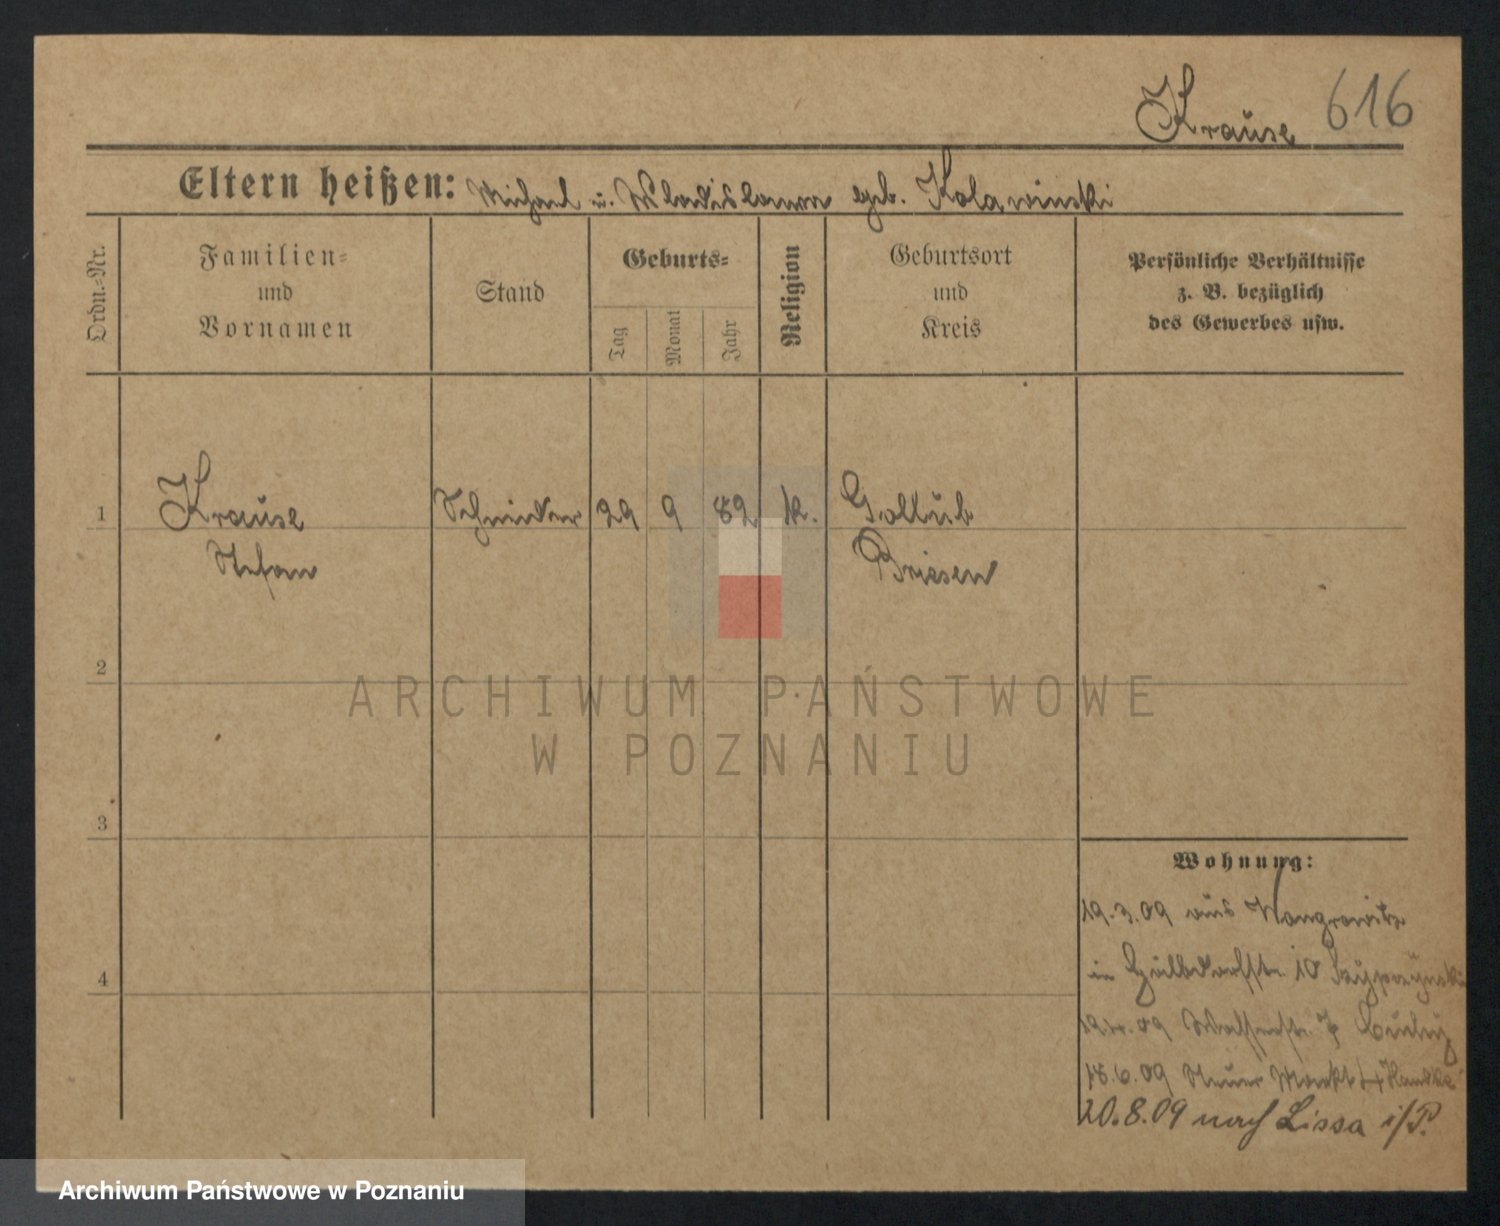 Krause 616
Eltern heißen: Michael u. Wladislawa geb. Kolawinski
Ordn.-Nr.
Familien-
und
Vornamen
Stand
Geburts-
Tag
Monat
Jahr
Religion
Geburtsort
und
Kreis
Persönliche Verhältnisse
z. B. bezüglich
des Gewerbes usw.
1 Krause Schneider 29 9 82 k. Gollub
Stefan Briesen
2
3
4
Wohnung:
19.3.09 aus Wongrowitz
in 10
09
18.6.09 Neuer Markt
20.8.09 nach Lissa i/P.
ARCHIWUM PAŃSTWOWE
W POZNANIU
Archiwum Państwowe w Poznaniu